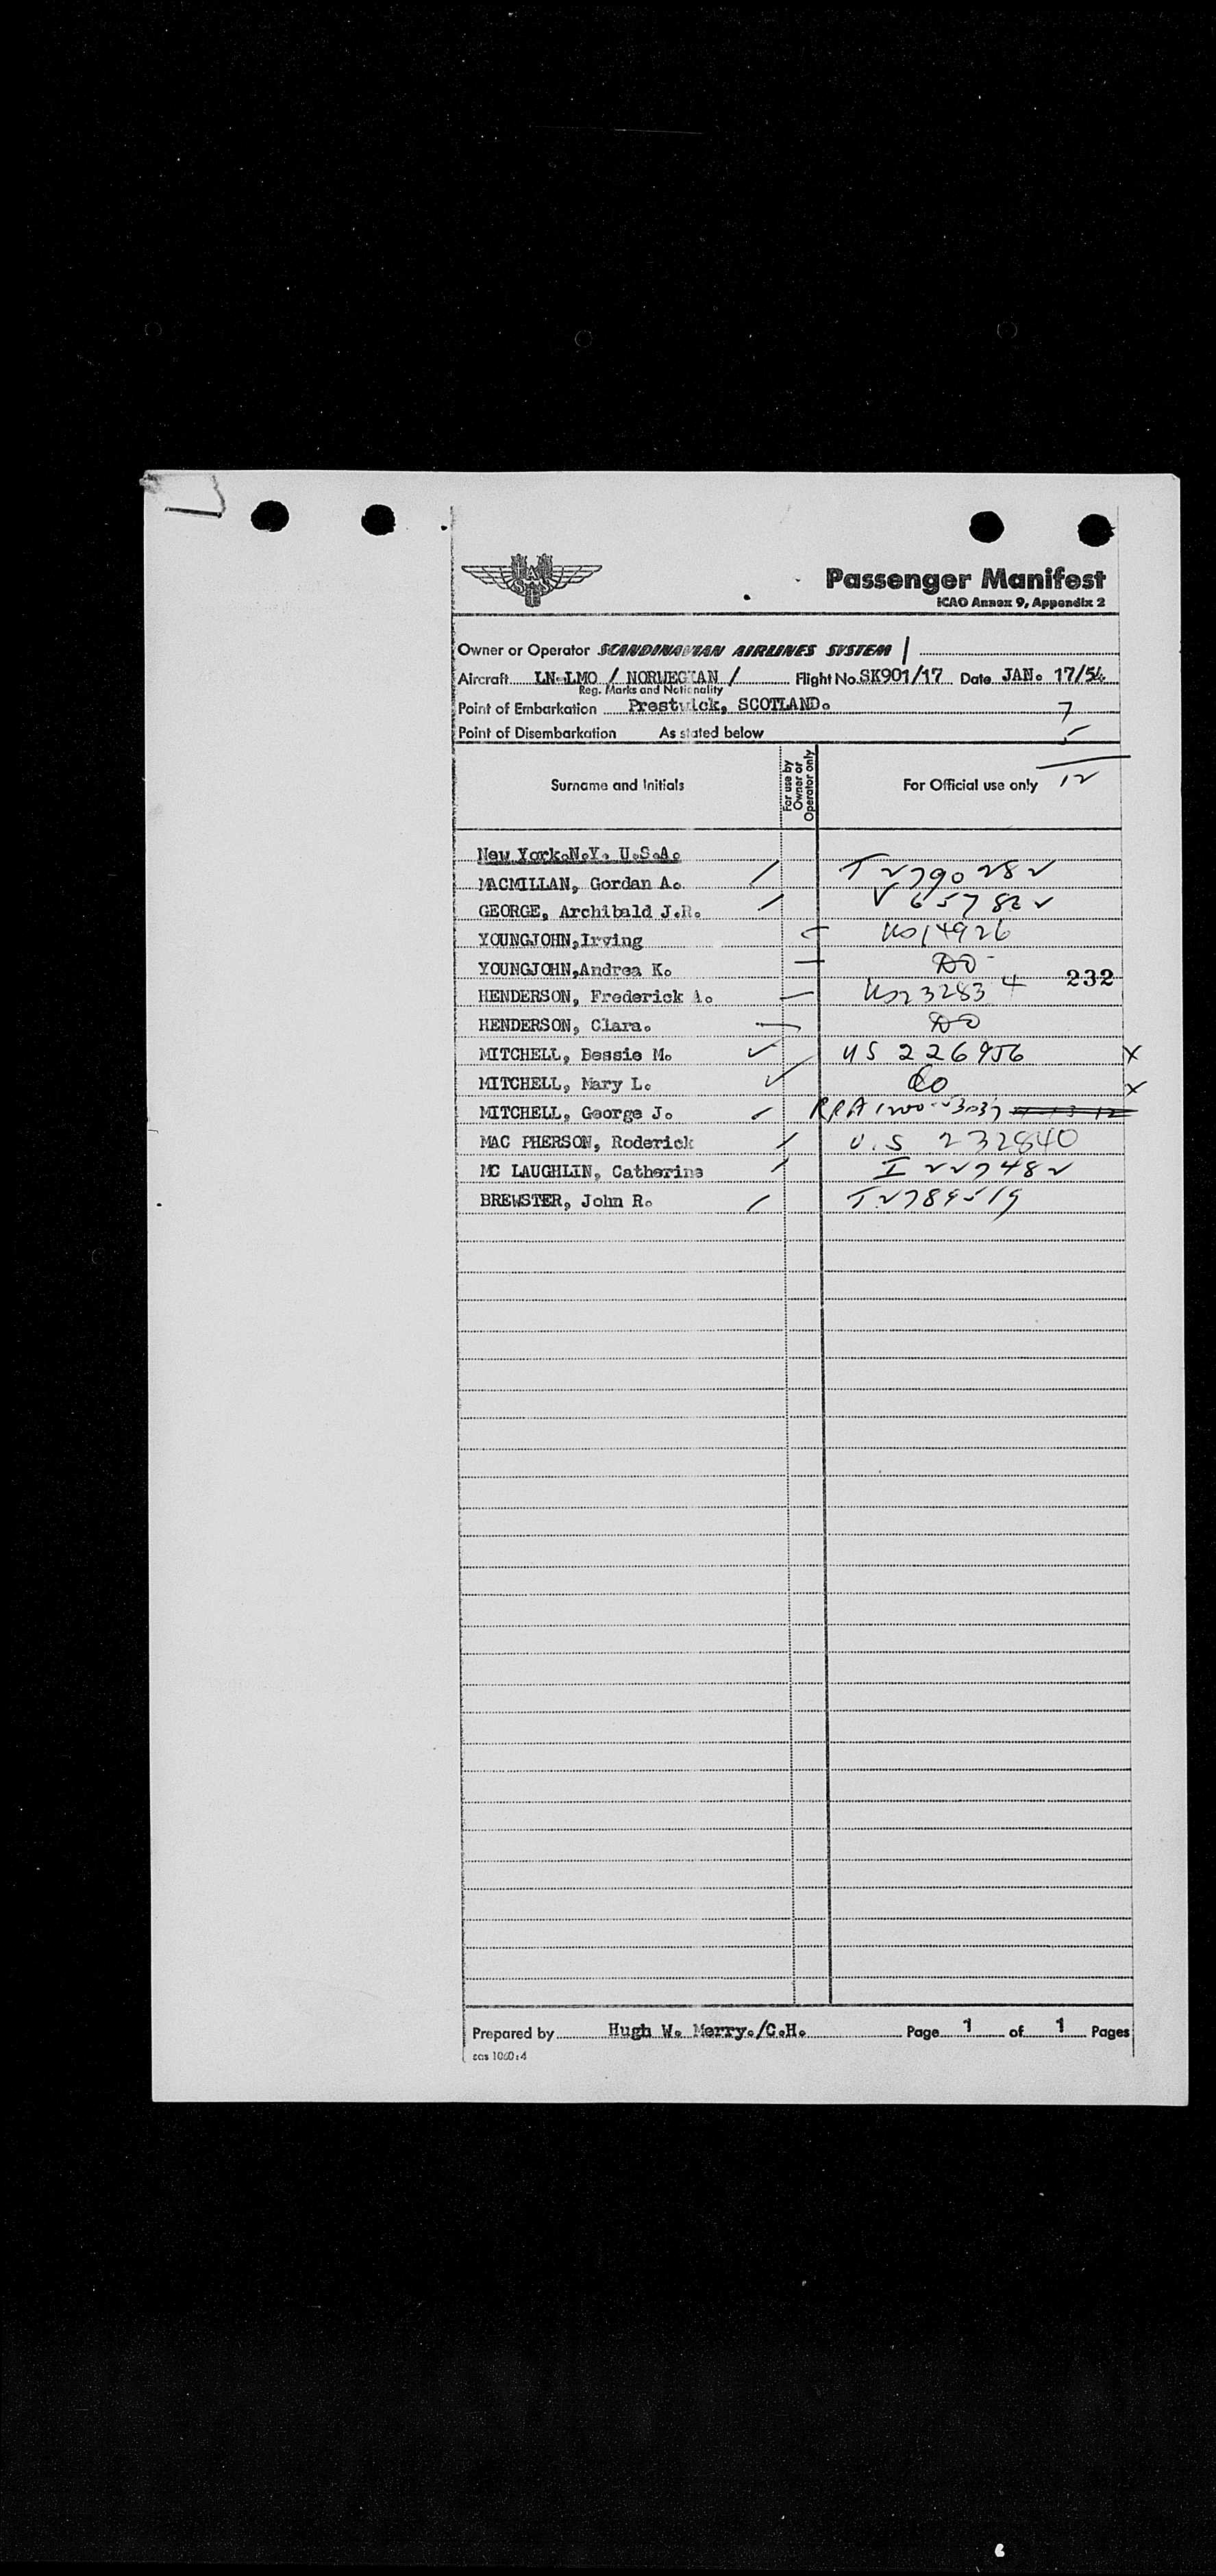 SAS
Passenger Manifest
ICAO Annex 9, Appendix 2
Owner or Operator SCANDINAVIAN AIRLINES SYSTEM /
Aircraft LN-LMO / NORWEGIAN / Flight No. SK901/17 Date JAN. 17/54
Reg. Marks and Nationality
Point of Embarkation Prestwick, SCOTLAND. 7
Point of Disembarkation As stated below 5
Surname and Initials For use by Owner or Operator only For Official use only 12
New York.N.Y. U.S.A.
MACMILLAN, Gordan A.
GEORGE, Archibald J.R.
YOUNGJOHN,Irving US14926
YOUNGJOHN,Andrea K. DO
232
HENDERSON, Frederick A. US23283 4
HENDERSON, Clara. DO
MITCHELL, Bessie M. ✓ US 226956 X
MITCHELL, Mary L. ✓ do X
MITCHELL, George J.
MAC PHERSON, Roderick U.S 232840
MC LAUGHLIN, Catherine
BREWSTER, John R.
Prepared by Hugh W. Merry./C.H. Page 1 of 1 Pages
sas 1060:4